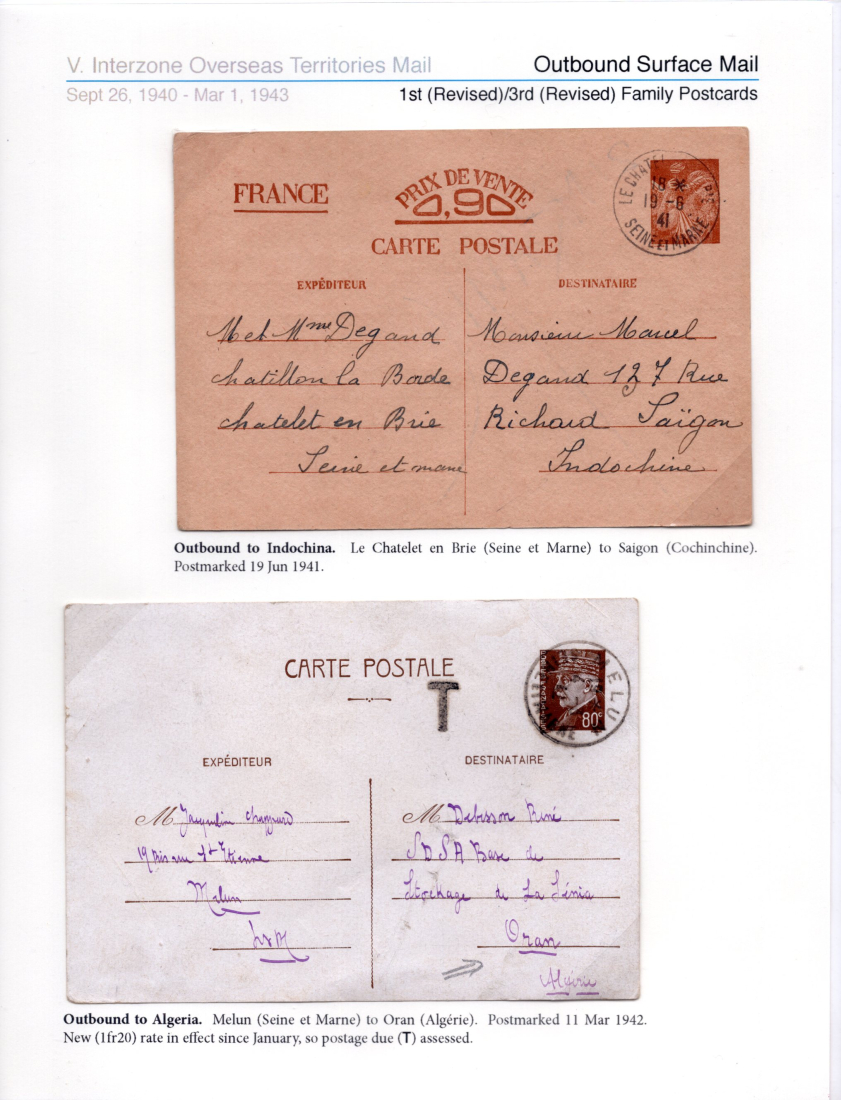 V. Interzone Overseas Territories Mail Outbound Surface Mail
Sept 26, 1940 - Mar 1, 1943 1st (Revised)/3rd (Revised) Family Postcards
FRANCE
PRIX DE VENTE
0,90
CARTE POSTALE
LE CHATEL
18
19 -6
41
SEINE ET MARNE
EXPÉDITEUR
M et Mme Degand
chatillon la Borde
chatelet en Brie
Seine et marne
DESTINATAIRE
Monsieur Marcel
Degand 127 Rue
Richard Saïgon
Indochine
Outbound to Indochina. Le Chatelet en Brie (Seine et Marne) to Saigon (Cochinchine).
Postmarked 19 Jun 1941.
CARTE POSTALE
T
80c
MELUN
EXPÉDITEUR
M Jacqueline
19 bis rue St Etienne
Melun
S&M
DESTINATAIRE
M Debisson René
SDSA Base de
Stockage de La Sénia
Oran
Algérie
Outbound to Algeria. Melun (Seine et Marne) to Oran (Algérie). Postmarked 11 Mar 1942.
New (1fr20) rate in effect since January, so postage due (T) assessed.